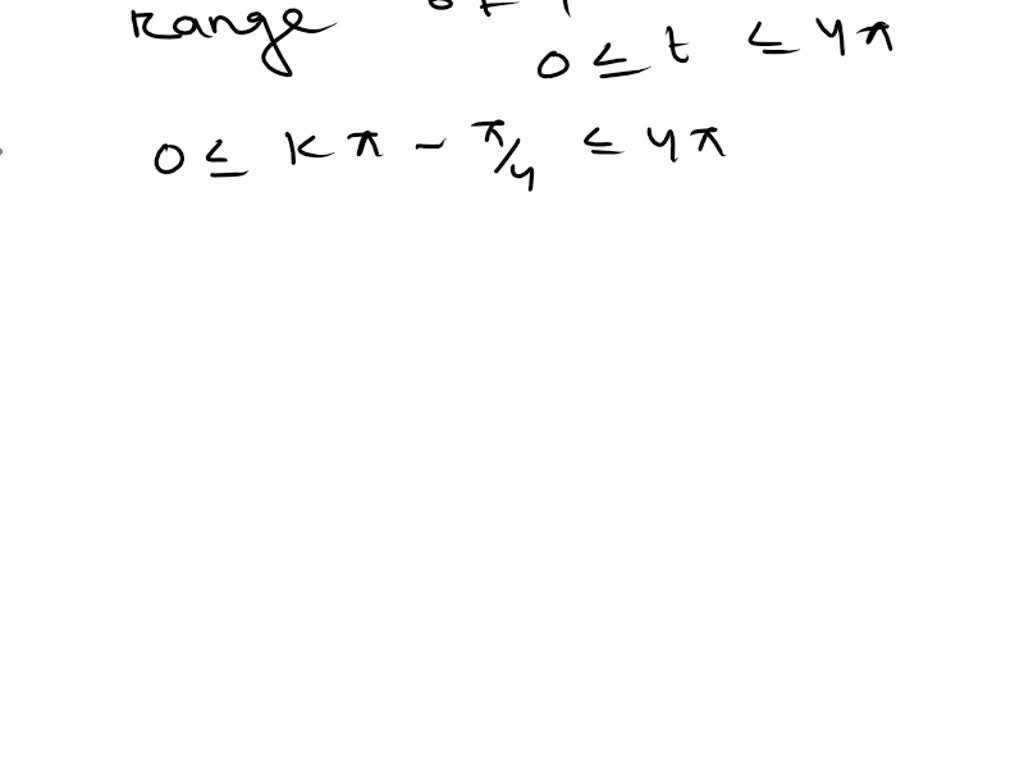 range
0 ≤ t ≤ 4π
0 ≤ kπ - π/4 ≤ 4π